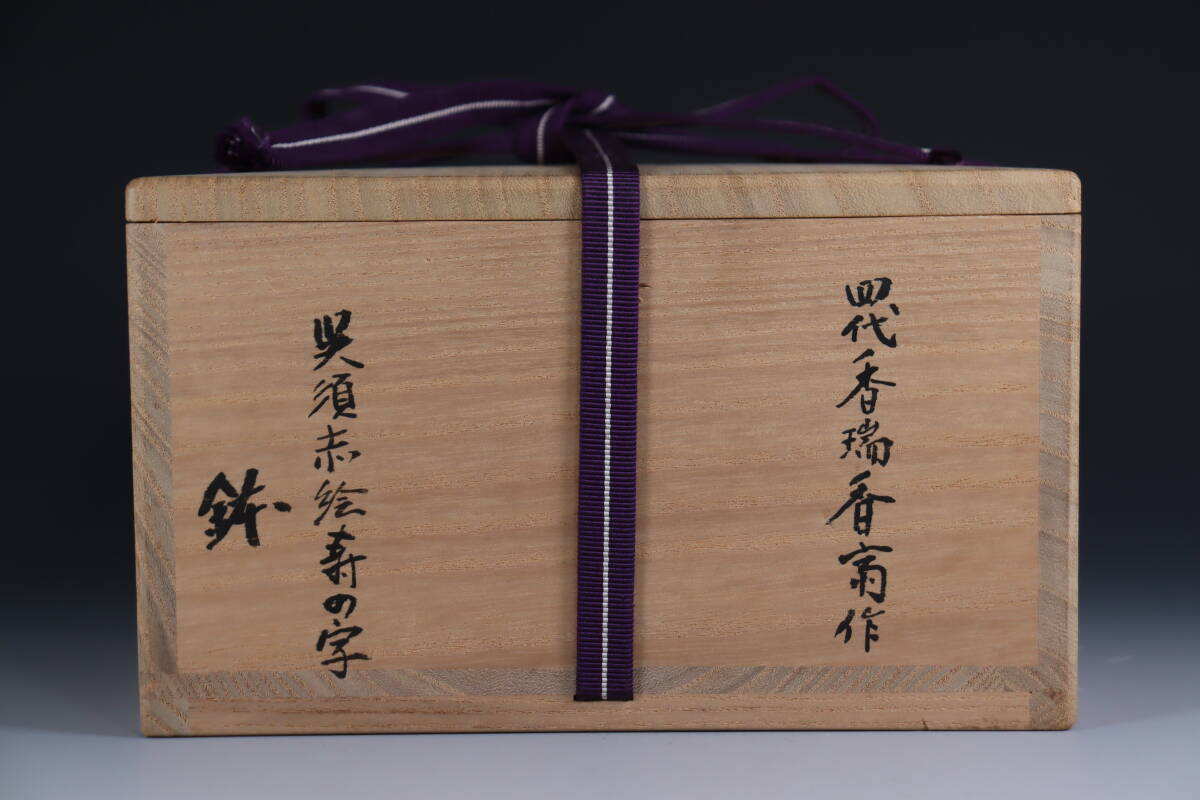 四代香瑞香斎作
呉須赤絵寿の字
鉢